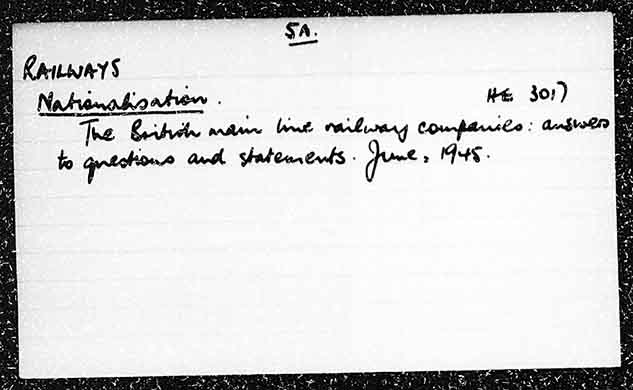 5A.
RAILWAYS
Nationalisation. HE 3017
The British main line railway companies: answers
to questions and statements. June, 1945.